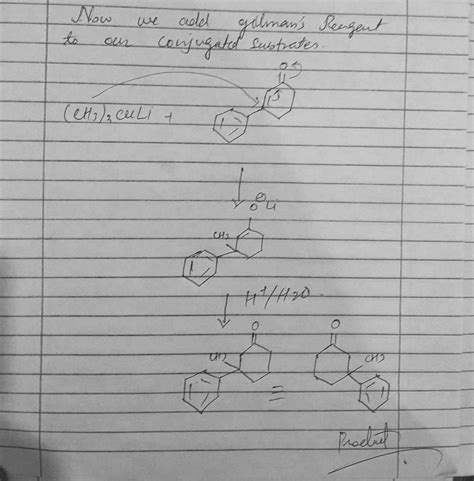 Now we add gilman's Reagent
to our conjugated substrates.
O
(CH3)2CuLi +
O Li
CH3
H+/H2O
O O
CH3 CH3
=
Product